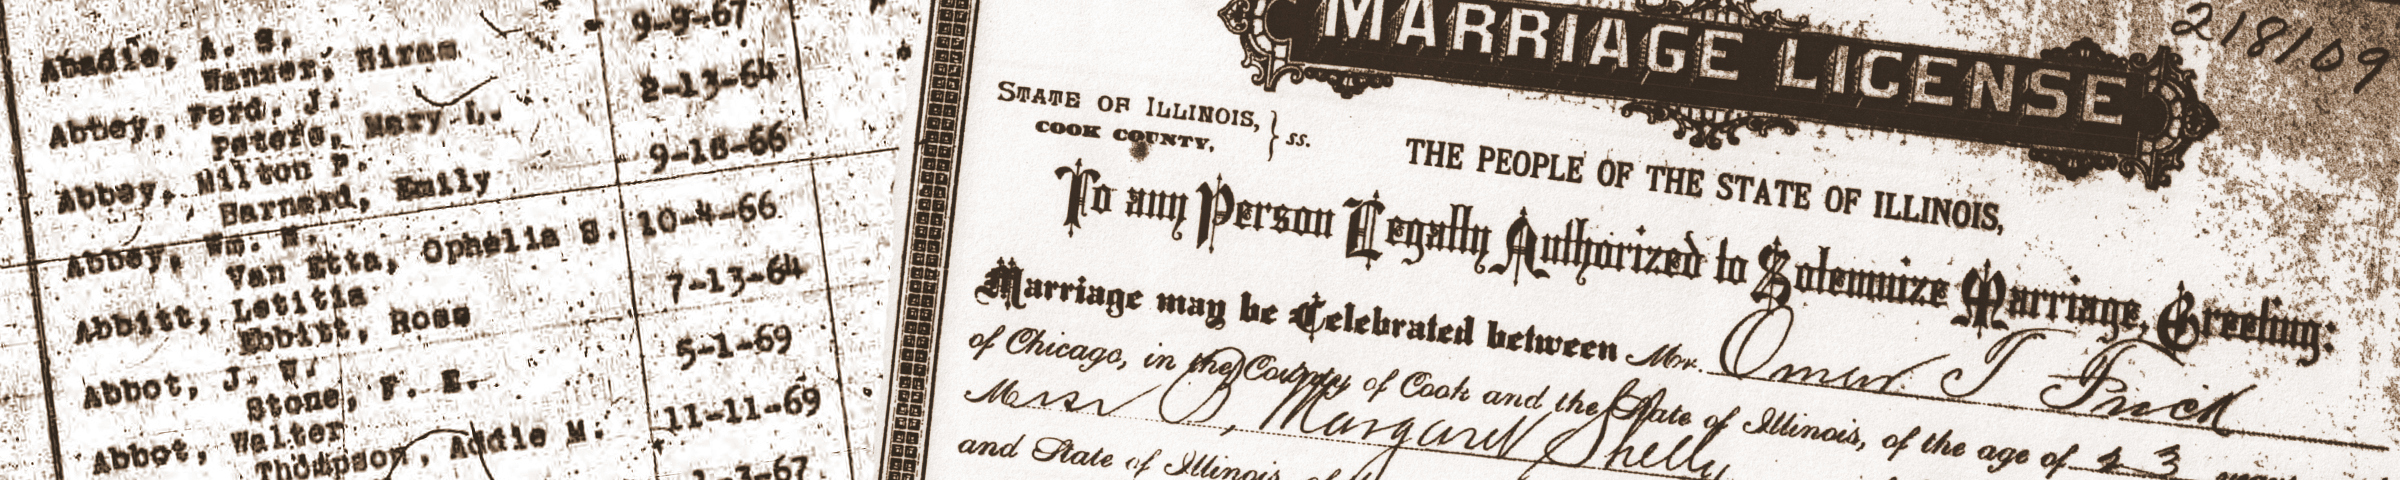 Abadie, A. S. 9-9-67
Wanzer, Hiram
Abbey, Ferd. J. 2-13-64
Peters, Mary L.
Abbey, Milton P. 9-18-66
Barnard, Emily
Abbey, Wm. H. 10-4-66
Van Etta, Ophelia S.
Abbitt, Letitia 7-13-64
Ebbitt, Ross
Abbot, J. W. 5-1-69
Stone, F. E.
Abbot, Walter 11-11-69
Thompson, Addie M.
1-3-67
MARRIAGE LICENSE
218109
STATE OF ILLINOIS,
COOK COUNTY, } ss.
THE PEOPLE OF THE STATE OF ILLINOIS,
To any Person Legally Authorized to Solemnize Marriage, Greeting:
Marriage may be Celebrated between Mr. Omer T
of Chicago, in the County of Cook and the State of Illinois, of the age of 23 years
Miss B, Margaret Shelly
and State of Illinois, of